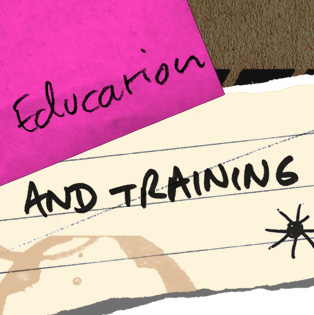 Education
AND TRAINING